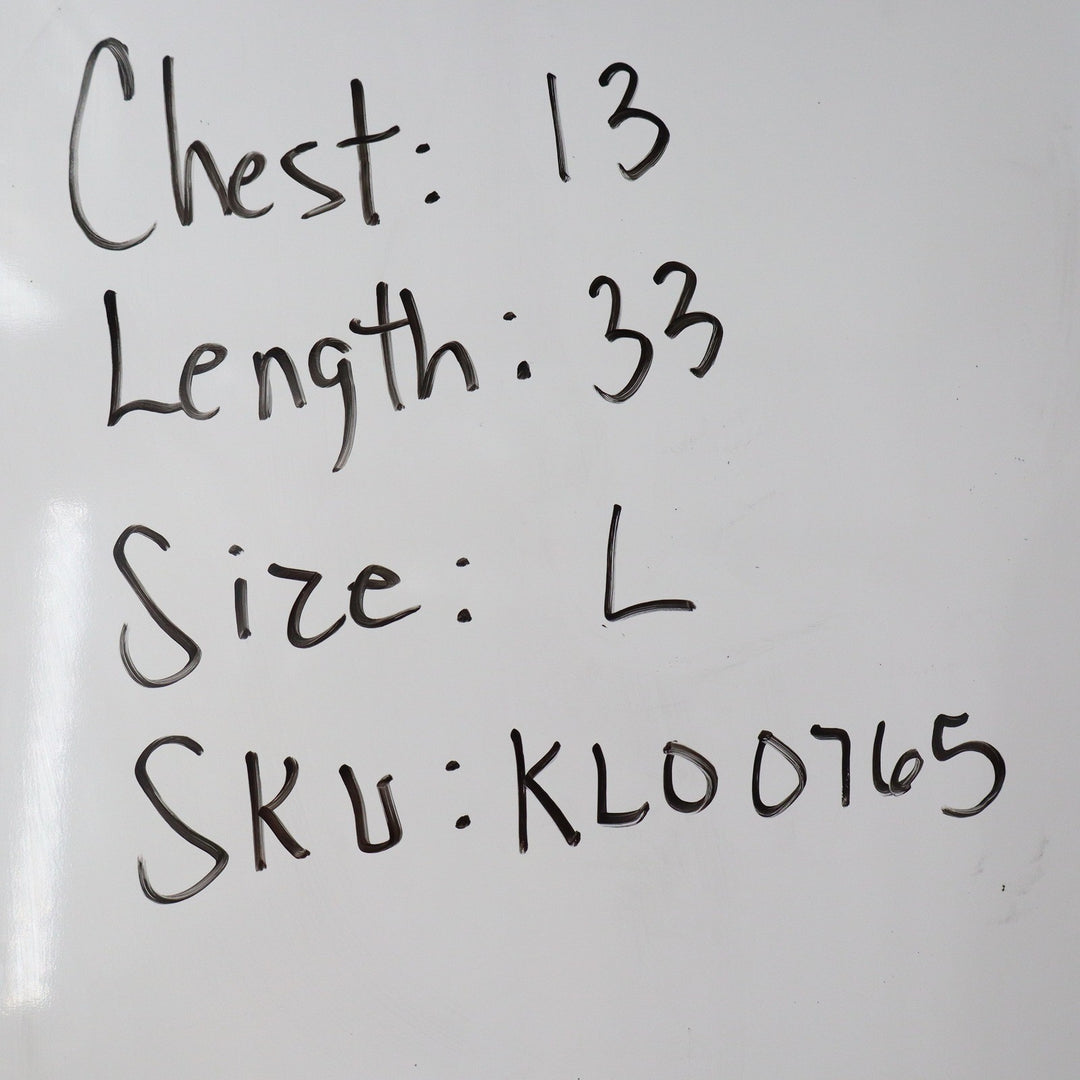 Chest: 13
Length: 33
Size: L
SKU: KL00765